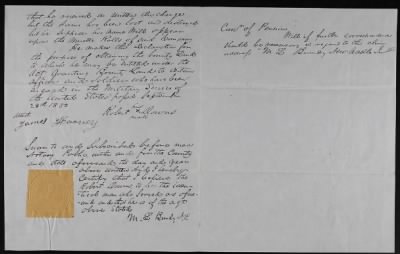 that he received a written discharge
but the same has been lost and destroyed
but he believes his name will appear
upon the Muster Rolls of said Company
He makes this declaration for
the purpose of obtaining the bounty Land
to which he may be entitled under the
act Granting Bounty Land to certain
officers and Soldiers who have been
engaged in the Military Service of
the United States passed September
28th 1850
Attest Robert
James mark
Sworn to and Subscribed before me a
Notary Public within and for the County
and State aforesaid the day and year
above written And I hereby
Certify that I believe the
Robert to be the iden-
tical man who Served as afore-
said and that he is of the age
above Stated
Com of Pensions
Will if further correspondence
should be necessary in regard to the above
address